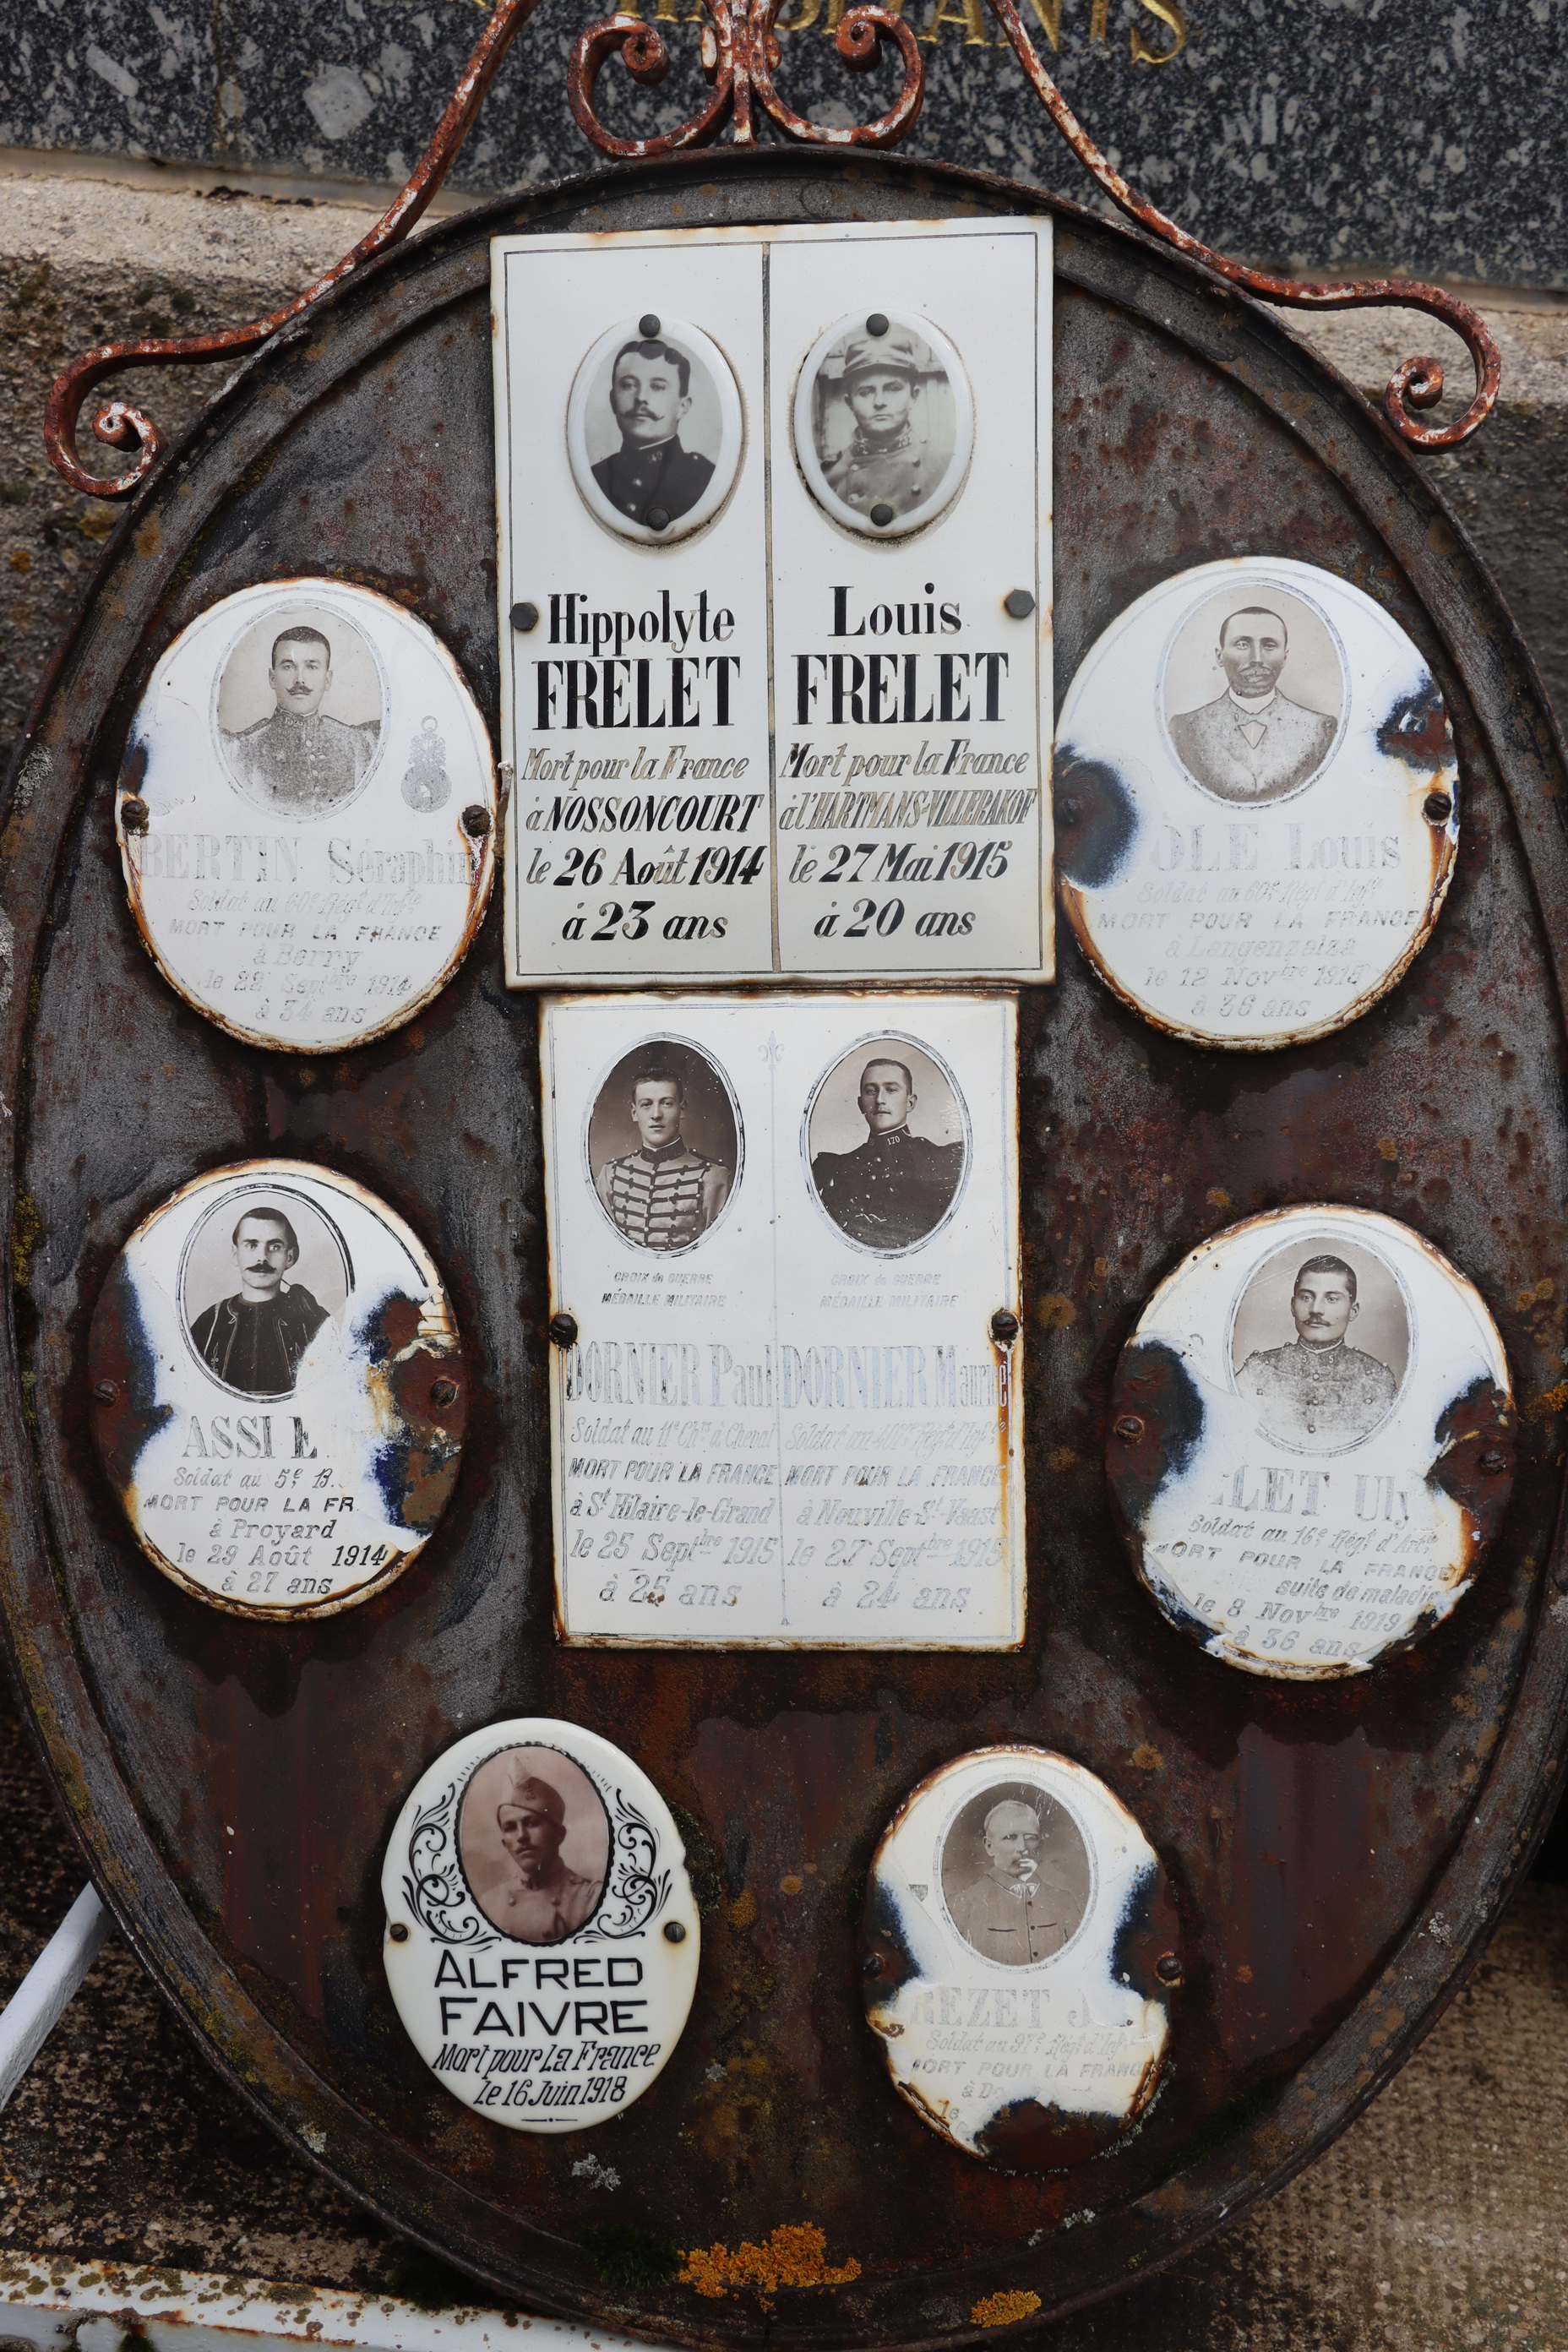 HABITANTS
Hippolyte
FRELET
Mort pour la France
à NOSSONCOURT
le 26 Août 1914
à 23 ans
Louis
FRELET
Mort pour la France
à l'HARTMANS-VILLERAKOF
le 27 Mai 1915
à 20 ans
BERTIN Séraphin
Soldat au 60e Régt d'Inftie
MORT POUR LA FRANCE
à Berry
le 22 Septbre 1914
à 34 ans
OLE Louis
Soldat au 60e Régt d'Inftie
MORT POUR LA FRANCE
à Langenzalza
le 12 Novbre 1918
à 36 ans
170
CROIX de GUERRE
MÉDAILLE MILITAIRE
DORNIER Paul
Soldat au 11e Chrs à Cheval
MORT POUR LA FRANCE
à St Hilaire-le-Grand
le 25 Septbre 1915
à 25 ans
CROIX de GUERRE
MÉDAILLE MILITAIRE
DORNIER
Soldat au Régt d'Inftie
MORT POUR LA FRANCE
à Neuville-St-Vaast
le 27 Septbre 1915
à 24 ans
ASSI
Soldat au 5e B
MORT POUR LA FR
à Proyard
le 29 Août 1914
à 27 ans
LET Uly
Soldat au 16e Régt d'Artie
MORT POUR LA FRANCE
suite de maladie
le 8 Novbre 1919
à 36 ans
ALFRED
FAIVRE
Mort pour La France
Le 16 Juin 1918
REZET J
Soldat au 97e Régt d'Inftie
MORT POUR LA FRANCE
à
le